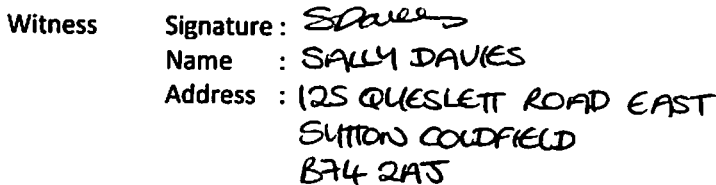 Witness Signature : SDavies
Name : SALLY DAVIES
Address : 125 QUESLETT ROAD EAST
SUTTON COLDFIELD
B74 2AJ